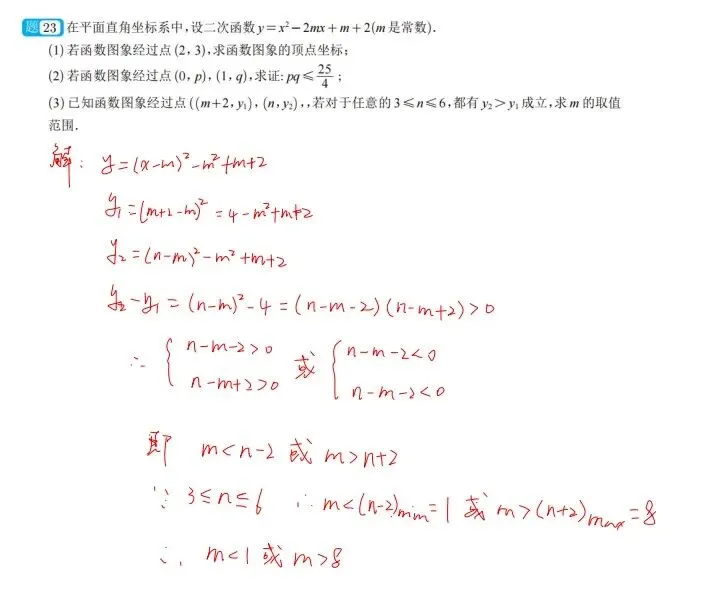 题23 在平面直角坐标系中,设二次函数y=x²-2mx+m+2(m是常数).
(1)若函数图象经过点(2,3),求函数图象的顶点坐标;
(2)若函数图象经过点(0,p),(1,q),求证:pq≤25/4;
(3)已知函数图象经过点((m+2,y₁),(n,y₂),,若对于任意的3≤n≤6,都有y₂>y₁成立,求m的取值
范围.
解: y=(x-m)²-m²+m+2
y₁=(m+2-m)²=4-m²+m+2
y₂=(n-m)²-m²+m+2
y₂-y₁=(n-m)²-4=(n-m-2)(n-m+2)>0
∴ { n-m-2>0 或 { n-m-2<0
n-m+2>0 n-m-2<0
即 m<n-2 或 m>n+2
∵ 3≤n≤6 ∴ m<(n-2)min=1 或 m>(n+2)max=8
∴ m<1 或 m>8